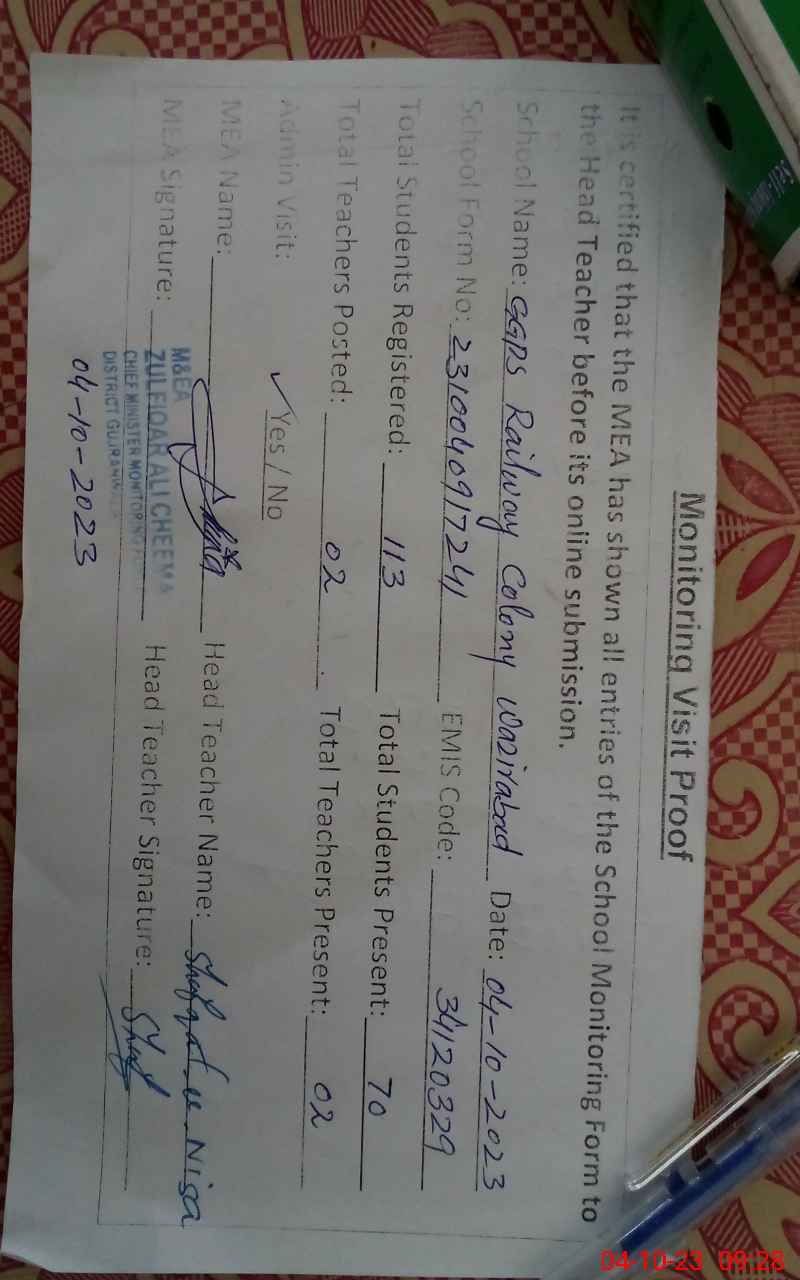 Monitoring Visit Proof
It is certified that the MEA has shown all entries of the School Monitoring Form to
the Head Teacher before its online submission.
School Name: GGPS Railway Colony Wazirabad Date: 04-10-2023
School Form No: 2310040917241 EMIS Code: 34120329
Total Students Registered: 113 Total Students Present: 70
Total Teachers Posted: 02 Total Teachers Present: 02
Admin Visit: ✓ Yes / No
MEA Name: Head Teacher Name: Shafqat-u-Nisa
MEA Signature: Head Teacher Signature:
M&EA
ZULFIQAR ALI CHEEMA
CHIEF MINISTER MONITORING
DISTRICT GUJRANWALA
04-10-2023
04-10-23 09:28